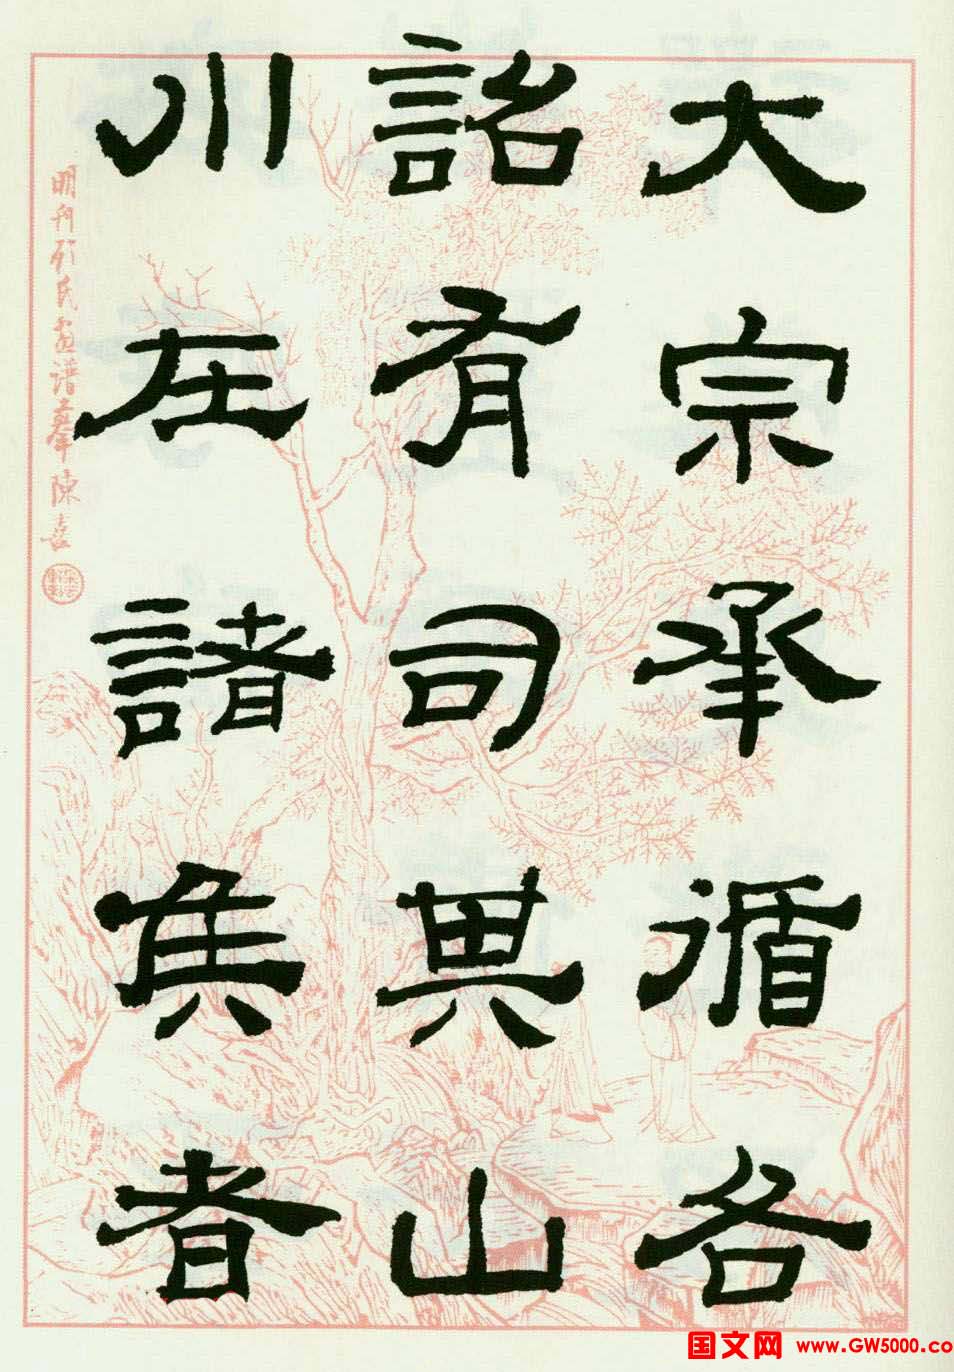 大宗承循各
詔有司其山
川在諸侯者
明刊顾氏画谱摹陳喜
国文网 www.GW5000.co